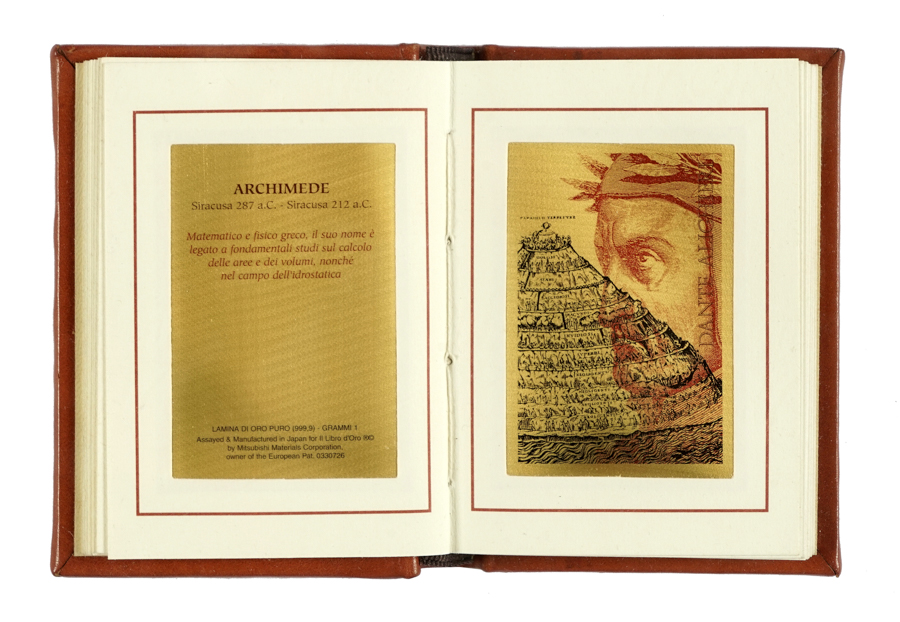 ARCHIMEDE
Siracusa 287 a.C. - Siracusa 212 a.C.
Matematico e fisico greco, il suo nome è
legato a fondamentali studi sul calcolo
delle aree e dei volumi, nonché
nel campo dell'idrostatica
LAMINA DI ORO PURO (999,9) - GRAMMI 1
Assayed & Manufactured in Japan for Il Libro d'Oro
by Mitsubishi Materials Corporation,
owner of the European Pat. 0330726
TERRESTRE
DANTE